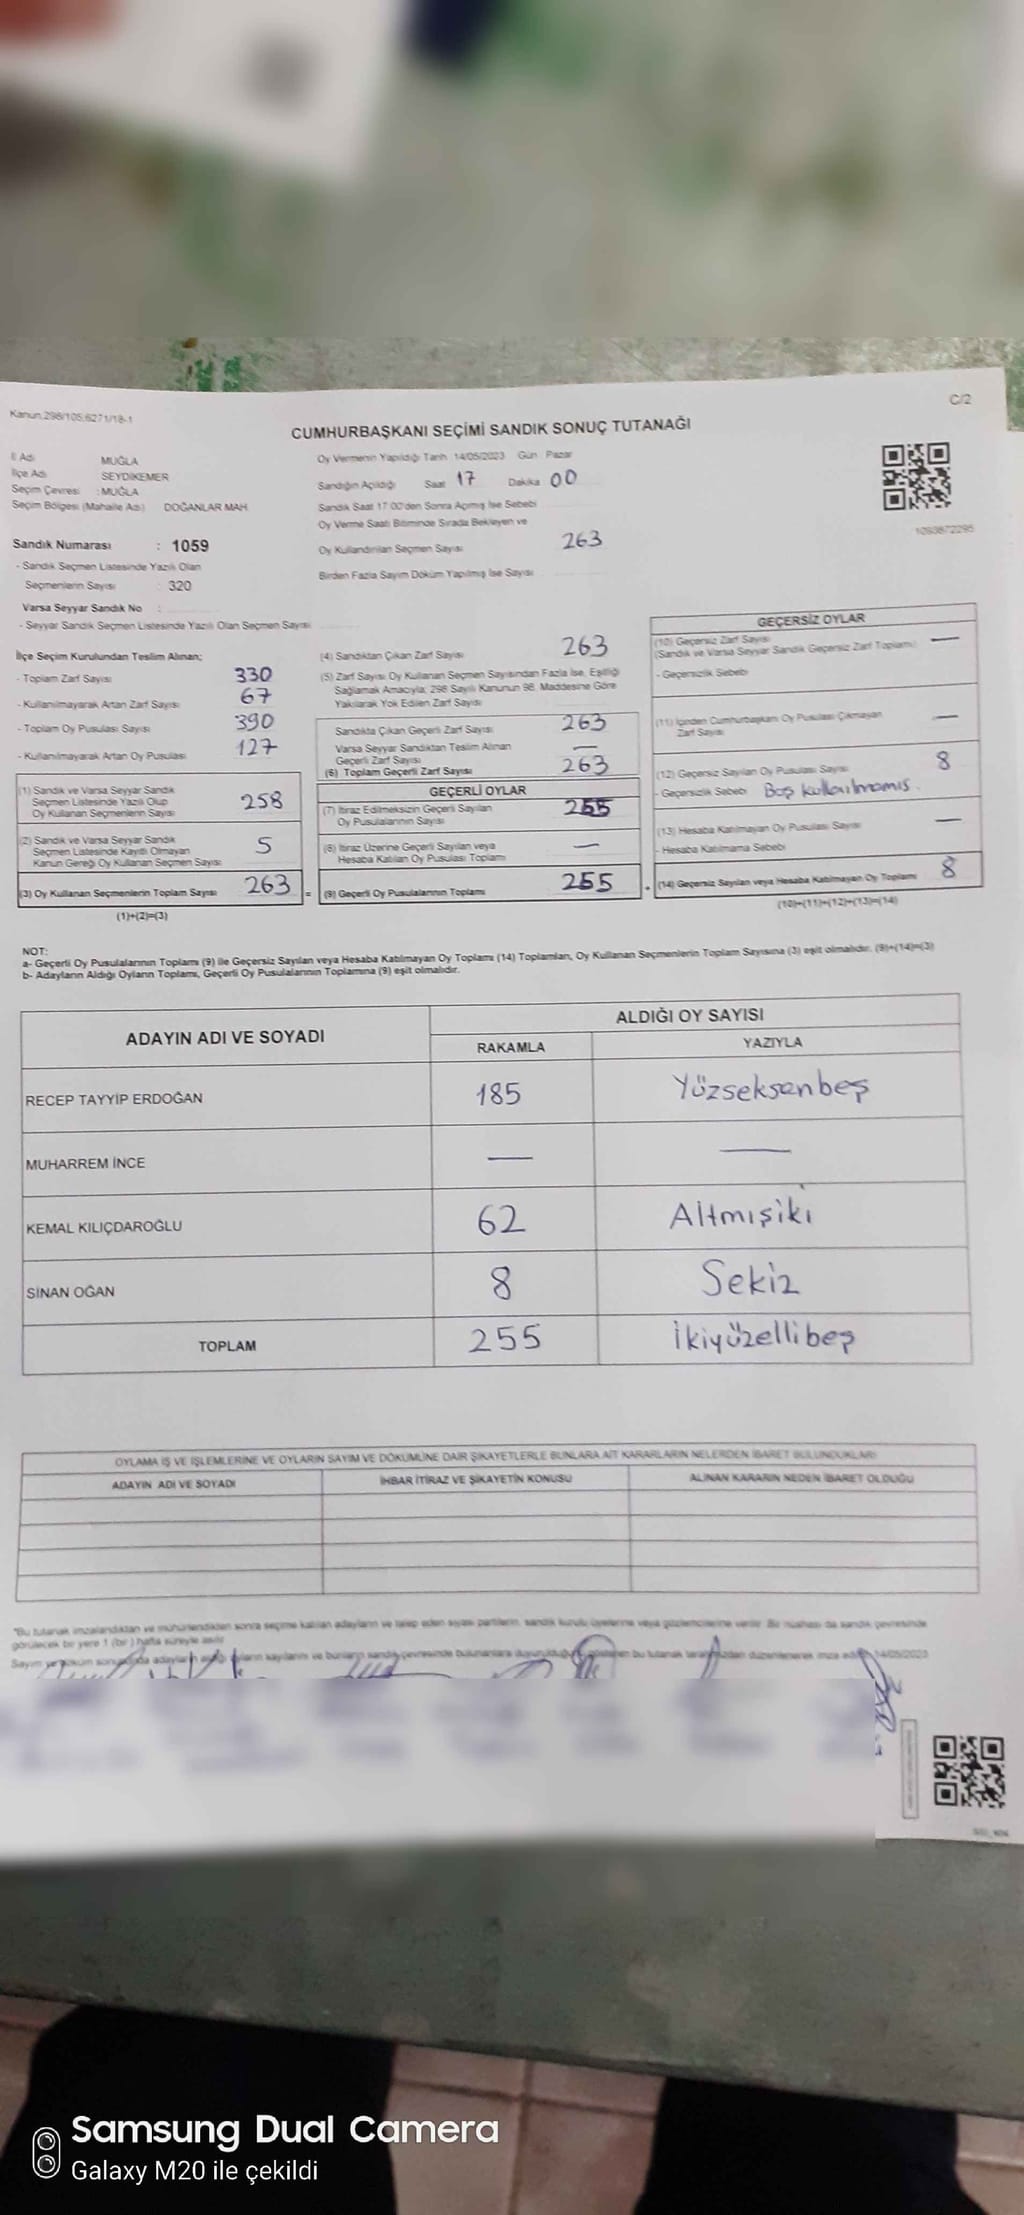 Kanun.298/105;6271/18-1
C/2
CUMHURBAŞKANI SEÇİMİ SANDIK SONUÇ TUTANAĞI
İl Adı MUĞLA
İlçe Adı SEYDİKEMER
Seçim Çevresi : MUĞLA
Seçim Bölgesi (Mahalle Adı) DOĞANLAR MAH.
Sandık Numarası : 1059
- Sandık Seçmen Listesinde Yazılı Olan
Seçmenlerin Sayısı : 320
Varsa Seyyar Sandık No :
- Seyyar Sandık Seçmen Listesinde Yazılı Olan Seçmen Sayısı
Oy Vermenin Yapıldığı Tarih 14/05/2023 Gün Pazar
Sandığın Açıldığı Saat 17 Dakika 00
Sandık Saat 17:00'den Sonra Açılmış İse Sebebi
Oy Verme Saati Bitiminde Sırada Bekleyen ve
Oy Kullandırılan Seçmen Sayısı 263
Birden Fazla Sayım Döküm Yapılmış İse Sayısı
1093872295
İlçe Seçim Kurulundan Teslim Alınan;
- Toplam Zarf Sayısı 330
- Kullanılmayarak Artan Zarf Sayısı 67
- Toplam Oy Pusulası Sayısı 390
- Kullanılmayarak Artan Oy Pusulası 127
(1) Sandık ve Varsa Seyyar Sandık
Seçmen Listesinde Yazılı Olup
Oy Kullanan Seçmenlerin Sayısı 258
(2) Sandık ve Varsa Seyyar Sandık
Seçmen Listesinde Kayıtlı Olmayan
Kanun Gereği Oy Kullanan Seçmen Sayısı 5
(3) Oy Kullanan Seçmenlerin Toplam Sayısı 263 =
(1)+(2)=(3)
(4) Sandıktan Çıkan Zarf Sayısı 263
(5) Zarf Sayısı Oy Kullanan Seçmen Sayısından Fazla İse, Eşitliği
Sağlamak Amacıyla, 298 Sayılı Kanunun 98. Maddesine Göre
Yakılarak Yok Edilen Zarf Sayısı
Sandıkta Çıkan Geçerli Zarf Sayısı 263
Varsa Seyyar Sandıktan Teslim Alınan
Geçerli Zarf Sayısı —
(6) Toplam Geçerli Zarf Sayısı 263
GEÇERLİ OYLAR
(7) İtiraz Edilmeksizin Geçerli Sayılan
Oy Pusulalarının Sayısı 255
(8) İtiraz Üzerine Geçerli Sayılan veya
Hesaba Katılan Oy Pusulası Toplamı —
(9) Geçerli Oy Pusulalarının Toplamı 255 +
GEÇERSİZ OYLAR
(10) Geçersiz Zarf Sayısı
(Sandık ve Varsa Seyyar Sandık Geçersiz Zarf Toplamı) —
- Geçersizlik Sebebi
(11) İçinden Cumhurbaşkanı Oy Pusulası Çıkmayan
Zarf Sayısı —
(12) Geçersiz Sayılan Oy Pusulası Sayısı 8
- Geçersizlik Sebebi Boş kullanılmamış.
(13) Hesaba Katılmayan Oy Pusulası Sayısı —
- Hesaba Katılmama Sebebi
(14) Geçersiz Sayılan veya Hesaba Katılmayan Oy Toplamı 8
(10)+(11)+(12)+(13)=(14)
NOT:
a- Geçerli Oy Pusulalarının Toplamı (9) ile Geçersiz Sayılan veya Hesaba Katılmayan Oy Toplamı (14) Toplamları, Oy Kullanan Seçmenlerin Toplam Sayısına (3) eşit olmalıdır. (9)+(14)=(3)
b- Adayların Aldığı Oyların Toplamı, Geçerli Oy Pusulalarının Toplamına (9) eşit olmalıdır.
ADAYIN ADI VE SOYADI
ALDIĞI OY SAYISI
RAKAMLA YAZIYLA
RECEP TAYYİP ERDOĞAN 185 Yüzseksenbeş
MUHARREM İNCE — —
KEMAL KILIÇDAROĞLU 62 Altmışiki
SİNAN OĞAN 8 Sekiz
TOPLAM 255 İkiyüzellibeş
OYLAMA İŞ VE İŞLEMLERİNE VE OYLARIN SAYIM VE DÖKÜMÜNE DAİR ŞİKAYETLERLE BUNLARA AİT KARARLARIN NELERDEN İBARET BULUNDUKLARI
ADAYIN ADI VE SOYADI İHBAR İTİRAZ VE ŞİKAYETİN KONUSU ALINAN KARARIN NEDEN İBARET OLDUĞU
*Bu tutanak imzalandıktan ve mühürlendikten sonra seçime katılan adayların ve talep eden siyasi partilerin, sandık kurulu üyelerine veya gözlemcilerine verilir. Bir nüshası da sandık çevresinde
görülecek bir yere 1 (bir) hafta süreyle asılır.
Sayım ve döküm sonucunda adayların aldığı oyların sayılarını ve bunların sandık çevresinde bulunanlara duyurulduğunu gösteren bu tutanak tarafımızdan düzenlenerek imza edildi. 14/05/2023
Samsung Dual Camera
Galaxy M20 ile çekildi